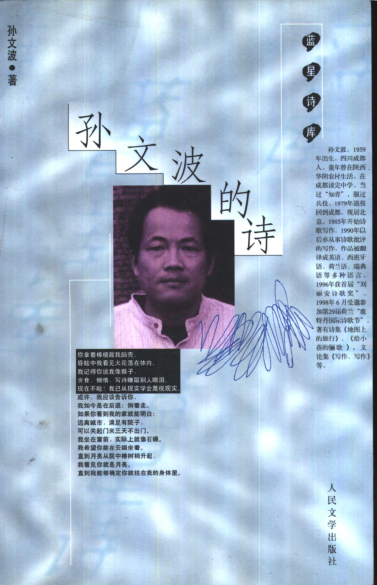 孙文波·著
蓝星诗库
孙文波的诗
孙文波，1959
年出生，四川成都
人，童年曾在陕西
华阴农村生活，在
成都读完中学。当
过“知青”，服过
兵役。1979年退役
回到成都。现居北
京。1985年开始诗
歌写作，1990年以
后亦从事诗歌批评
的写作。作品被翻
译成英语、西班牙
语、荷兰语、瑞典
语等多种语言。
1996年获首届“刘
丽安诗歌奖”。
1998年6月受邀参
加第29届荷兰“鹿
特丹国际诗歌节”。
著有诗集《地图上
的旅行》、《给小
蓓的俪歌》、文
论集《写作、写作》
等。
你拿着棒槌敲我脑壳，
昏眩中我看见火花落在体内。
我记得你说我像猴子，
贪食、懒惰、写诗赚取别人眼泪。
现在不啦！我已从现实学会蔑视现实。
或许，我应该告诉你，
我如今是在后退：倒着走。
如果你看到我的家就能明白：
远离城市，满足有院子，
可以关起门来三天不出门。
我坐在窗前，实际上就像石
我希望你能在云端坐着，
直到月亮从院中柳树梢升起，
我看见你就是月亮，
直到我能够确定你就活在我的身体里。
人民文学出版社